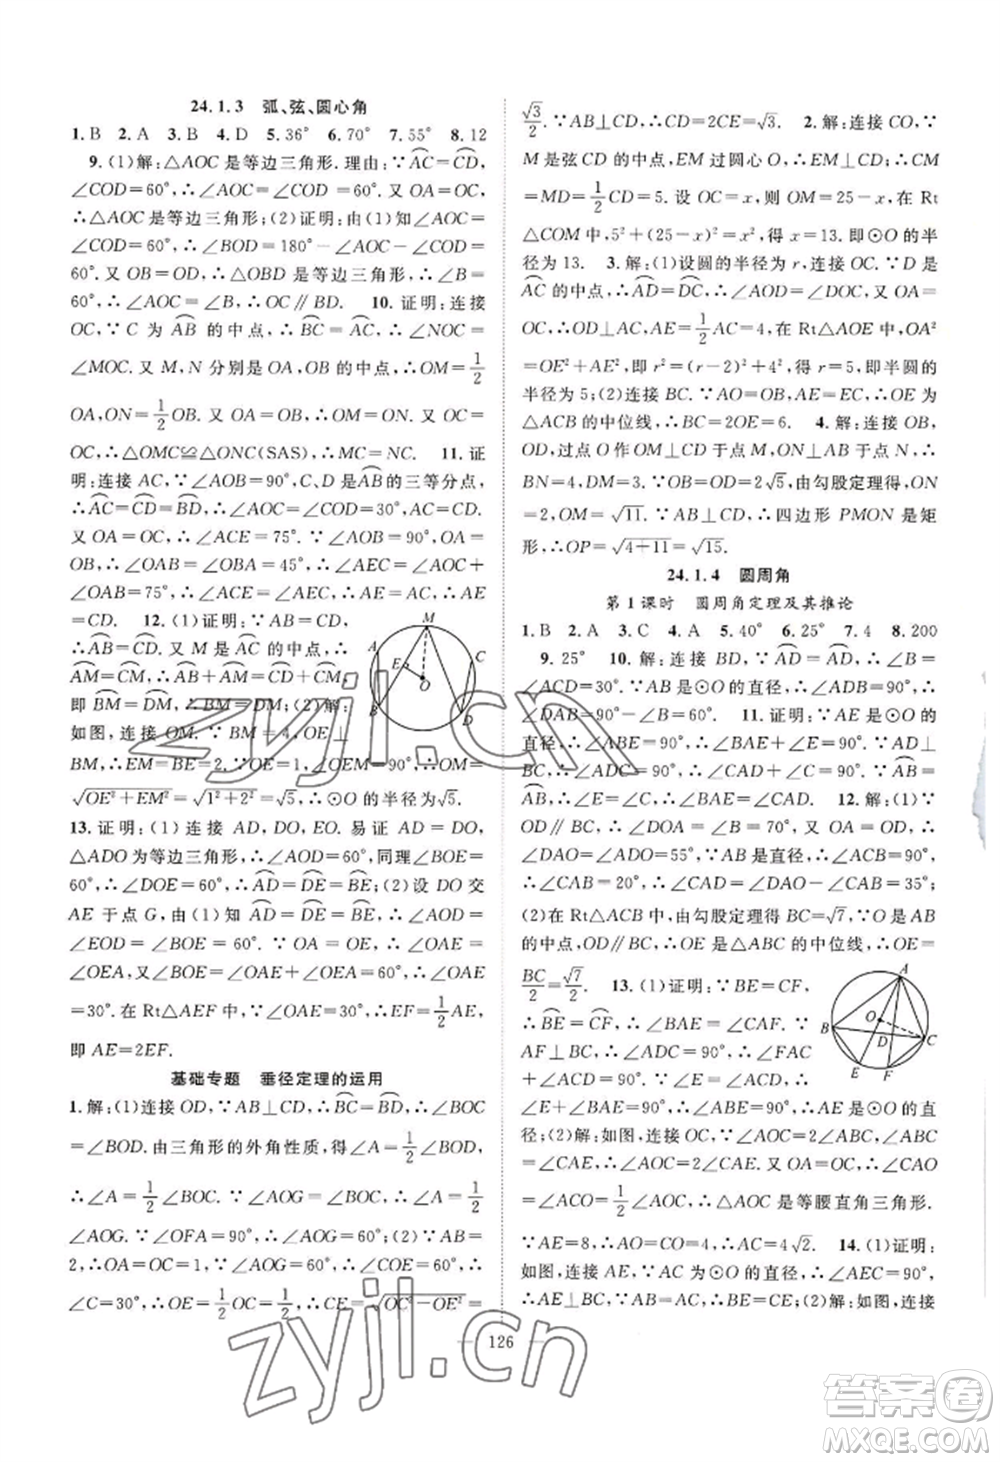 24.1.3 弧、弦、圆心角
1.B 2.A 3.B 4.D 5.36° 6.70° 7.55° 8.12
9.(1)解:△AOC是等边三角形.理由:∵AC=CD,
∴∠COD=60°,∴∠AOC=∠COD=60°.又∵OA=OC,
∴△AOC是等边三角形;(2)证明:由(1)可知∠AOC=
∠COD=60°,∴∠BOD=180°-∠AOC-∠COD=
60°.又∵OB=OD,∴△OBD是等边三角形,∴∠B=
60°.∴∠AOC=∠B,∴OC∥BD. 10.证明:连接
OC,∵C为AB的中点,∴BC=AC,∴∠NOC=
∠MOC.又∵M,N分别是OA,OB的中点,∴OM=1/2
OA,ON=1/2OB.又∵OA=OB,∴OM=ON.又OC=OC,
∴△OMC≌△ONC(SAS),∴MC=NC. 11.证
明:连接AC,∵∠AOB=90°,C、D是AB的三等分点,
∴AC=CD=BD,∴∠AOC=∠COD=30°,∴AC=CD.
又OA=OC,∴∠OCA=75°.∵∠AOB=90°,OA=
OB,∴∠OAB=∠OBA=45°,∴∠AEC=∠AOC+
∠OAB=75°,∴∠OCA=∠AEC,∴AE=AC,∴AE
=CD. 12.(1)证明:∵AB=CD,
∴AB=CD.又M是AC的中点,∴
AM=CM,∴AB+AM=CD+CM,
即BM=DM,∴BM=DM;(2)解:
如图,连接OM.∵BM=4,OE⊥
BM,∴EM=BE=2,∵OE=1,∠OEM=90°,∴OM=
√OE²+EM²=√1²+2²=√5,∴⊙O的半径为√5.
13.证明:(1)连接AD,DO,EO.易证AD=DO,
△ADO为等边三角形,∴∠AOD=60°,同理∠BOE=
60°,∴∠DOE=60°,∴AD=DE=BE;(2)设DO交
AE于点G,由(1)知AD=DE=BE,∴∠AOD=
∠EOD=∠BOE=60°.∵OA=OE,∴∠OAE=
∠OEA,又∵∠OAE+∠OEA=60°,∴∠OAE
=30°.在Rt△AEF中,∵∠OAE=30°,∴EF=1/2AE,
即AE=2EF.
基础专题 垂径定理的运用
1.解:(1)连接OD,∵AB⊥CD,∴BC=BD,∴∠BOC
=∠BOD.由三角形的外角性质,得∠A=1/2∠BOD,
∴∠A=1/2∠BOC.∵∠AOG=∠BOC,∴∠A=1/2
∠AOG.∵∠OFA=90°,∴∠AOG=60°;(2)∵AB=
2,∴OA=OC=1.∵∠AOG=60°,∴∠COE=60°,
∠C=30°,∴OE=1/2OC=1/2,∴CE=√OC²-OE²=
√3/2.∵AB⊥CD,∴CD=2CE=√3. 2.解:连接CO,∵
M是弦CD的中点,EM过圆心O,∴EM⊥CD,∴CM
=MD=1/2CD=5.设OC=x,则OM=25-x,在Rt
△COM中,5²+(25-x)²=x²,∴x=13.即⊙O的半
径为13. 3.解:(1)设圆的半径为r,连接OC.∵D是
AC的中点,∴AD=DC,∴∠AOD=∠COD.又OA=OC,
∴OD⊥AC,AE=1/2AC=4,在Rt△AOE中,OA²
=OE²+AE²,即r²=(r-2)²+4²,∴r=5,即半圆的
半径为5;(2)连接BC.∵AO=OB,AE=EC,∴OE为
△ACB的中位线,∴BC=2OE=6. 4.解:连接OB,
OD,过点O作OM⊥CD于点M,ON⊥AB于点N,∴
BN=4,DM=√5.∵OB=OD=2√5,由勾股定理得,ON
=2,OM=√11.∵AB⊥CD,∴四边形PMON是矩
形,∴OP=√4+11=√15.
24.1.4 圆周角
第1课时 圆周角定理及其推论
1.B 2.A 3.C 4.A 5.40° 6.25° 7.4 8.200
9.25° 10.解:连接BD,∵AD=AD,∴∠ABD=
∠ACD=30°.∵AB是⊙O的直径,∴∠ADB=90°,∴
∠DAB=90°-∠ABD=60°. 11.证明:∵AE是⊙O的
直径,∴∠ABE=90°,∴∠BAE=90°-∠E.∵AD⊥
BC,∴∠ADC=90°,∴∠CAD=90°-∠ACB.∵AB=
AB,∴∠E=∠ACB,∴∠BAE=∠CAD. 12.解:(1)∵
OD∥BC,∴∠AOD=∠ABC=70°.又∵OA=OD,∴
∠DAO=∠ADO=55°,∵AB是直径,∴∠ACB=90°,
∴∠CAB=20°,∴∠CAD=∠DAO-∠CAB=35°;
(2)在Rt△ACB中,由勾股定理得BC=√7,∵O是AB
的中点,OD∥BC,∴OE是△ABC的中位线,∴OE=
BC/2=√7/2. 13.(1)证明:∵BE=CF,
∴BE=CF,∴∠BAE=∠CAF.∵
AF⊥BC,∴∠ADC=90°,∴
∠FAC+∠ACD=90°.∵∠E=∠ACB,∴
∠E+∠BAE=90°,∴∠ABE=90°,∴AE是⊙O的直
径;(2)解:如图,连接OC,∵∠AOC=2∠ABC,∠ABC=
∠CAE,∴∠AOC=2∠CAE.∵OA=OC,∴∠CAO=
∠ACO=1/2∠AOC,∴△AOC是等腰直角三角形.
∵AE=8,∴AO=CO=4,∴AC=4√2. 14.(1)证明:
如图,连接AE,∵AC是⊙O的直径,∴∠AEC=90°,
∴AE⊥BC.又∵AB=AC,∴BE=CE;(2)解:如图,连接
126
A
M
C
E
O
B
D
A
O
B
D
C
E
F
zyjl.cn
zyjl.cn
答案圈
MXQE.COM